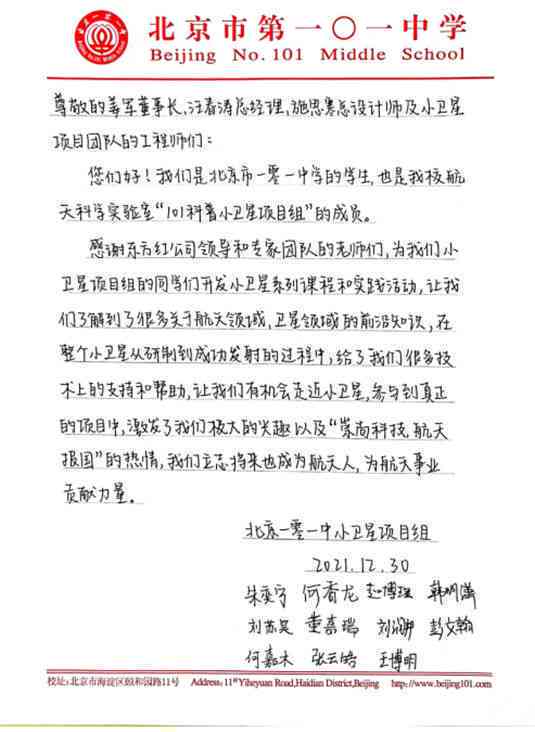 北京市第一〇一中学
Beijing No. 101 Middle School
尊敬的姜军董事长，汪春涛总经理，施思寒总设计师及小卫星
项目团队的工程师们：
您们好！我们是北京市一零一中学的学生，也是我校航
天科学实验室“101科普小卫星项目组”的成员。
感谢东方红公司领导和专家团队的老师们，为我们小
卫星项目组的同学们开发小卫星系列课程和实践活动，让我
们了解到了很多关于航天领域，卫星领域的前沿知识，在
整个小卫星从研制到成功发射的过程中，给了我们很多技
术上的支持和帮助，让我们有机会走近小卫星，参与到真正
的项目中，激发了我们极大的兴趣以及“崇尚科技，航天
报国”的热情，我们立志将来也成为航天人，为航天事业
贡献力量。
北京一零一中小卫星项目组
2021.12.30
朱奕宁 何香龙 赵博理 韩明
刘苏昊 董嘉瑞 彭文翰
何嘉木 张云皓 王博明
校址：北京市海淀区颐和园路11号 Address: 11# Yiheyuan Road, Haidian District, Beijing http: //www.beijing101.com